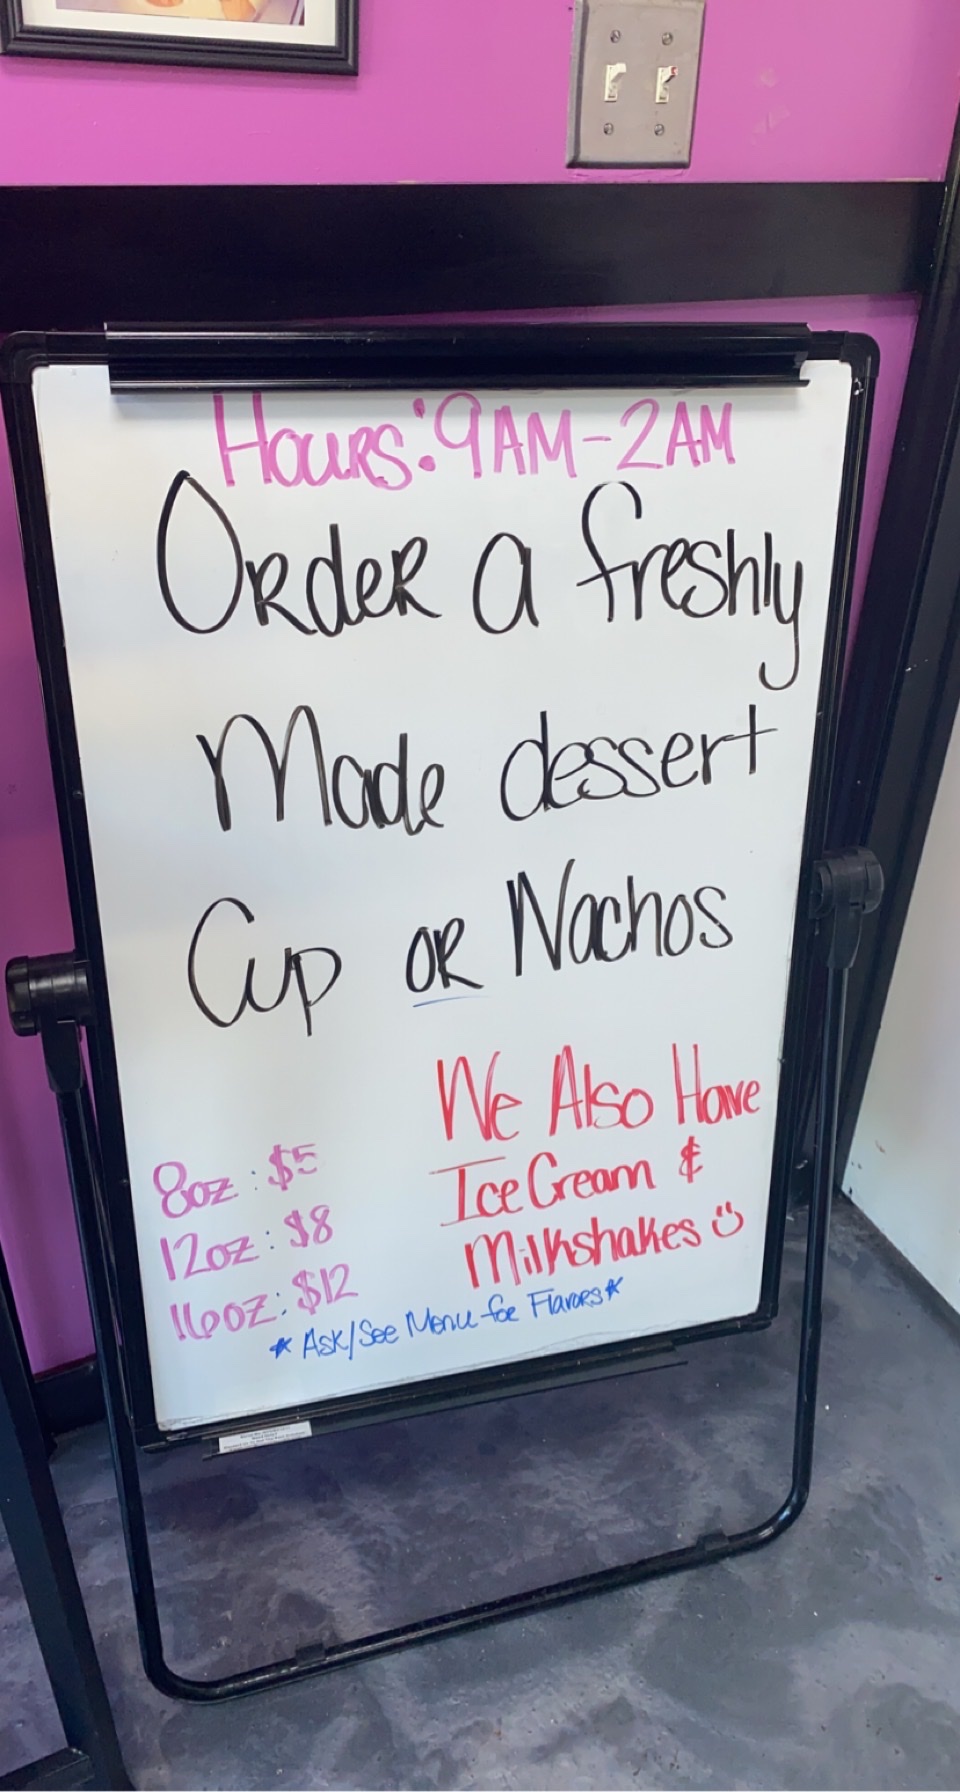 Hours: 9AM-2AM
Order a freshly
Made dessert
Cup or Nachos
We Also Have
Ice Cream &
Milkshakes ☺
8oz: $5
12oz: $8
16oz: $12
* Ask/See Menu for Flavors *